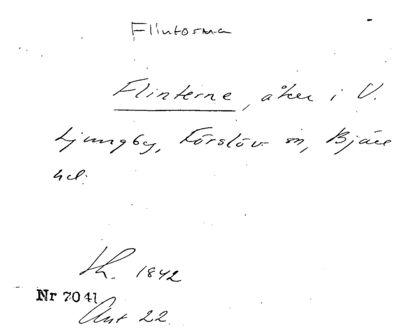 Flintorna
Flinterne, åker i V.
Ljungby, Förslöv sn, Bjäre
hd.
Lh. 1842
Nr 7041
Ant 22.